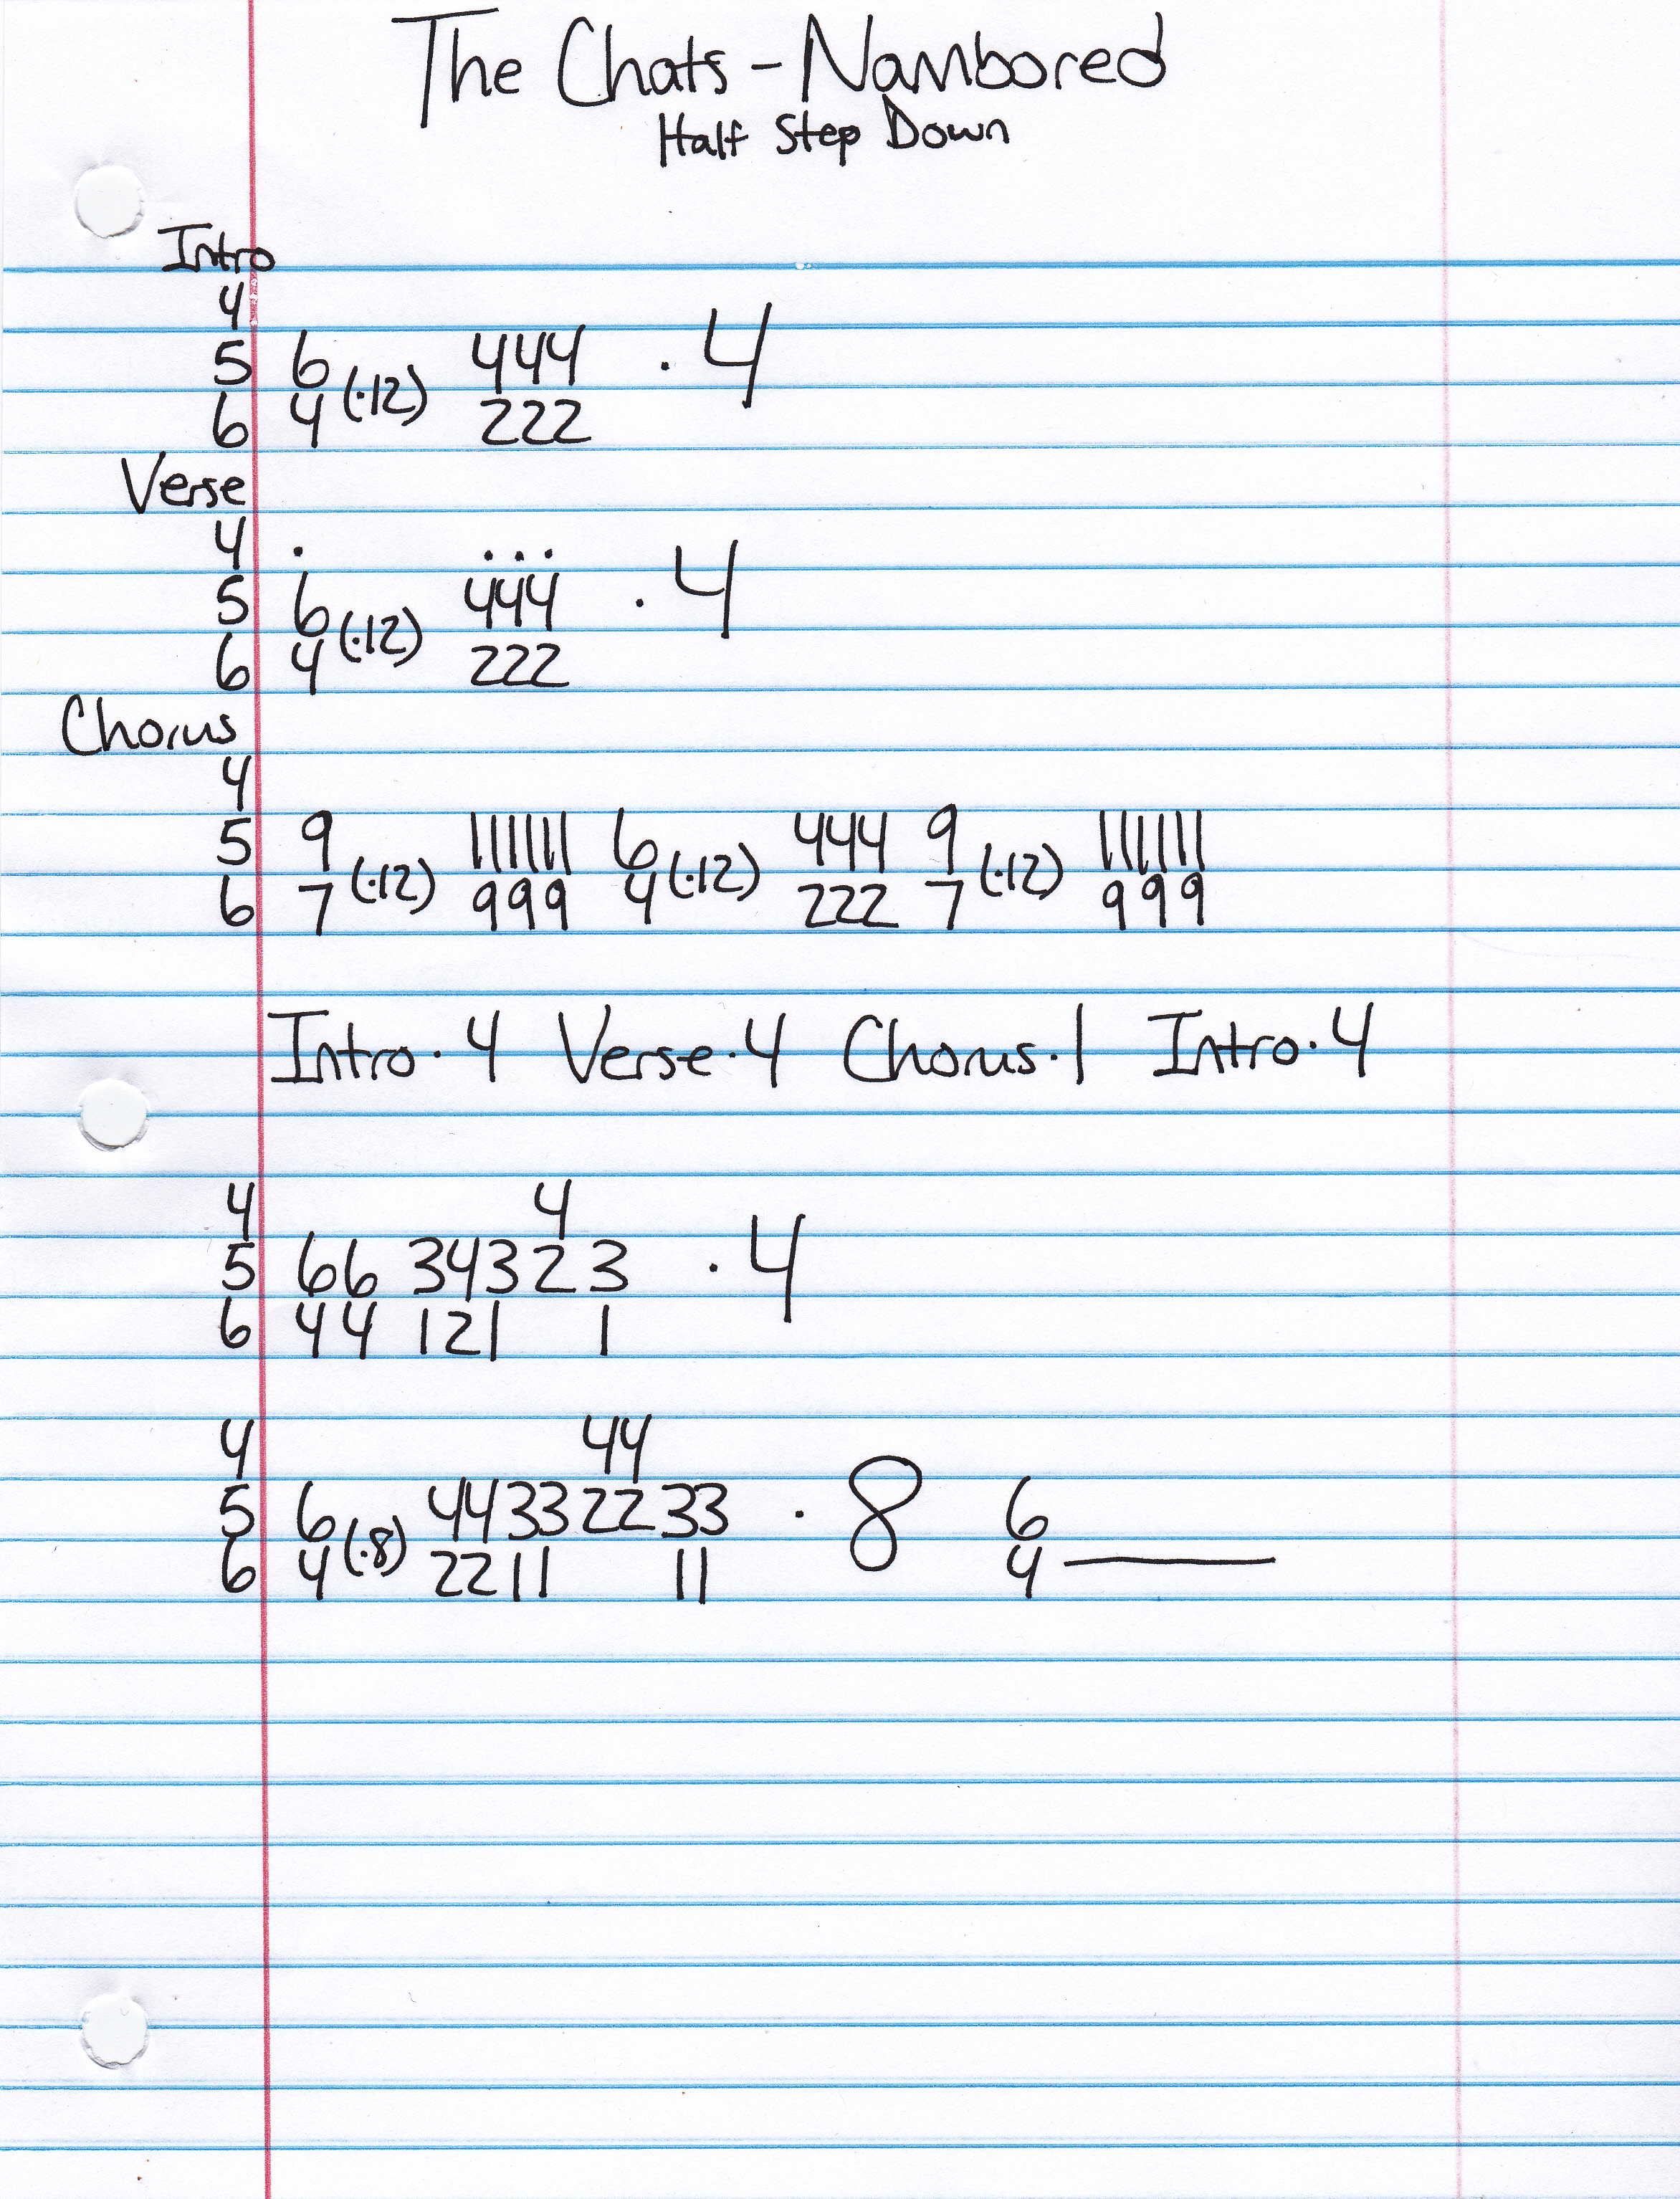 The Chats - Nambored
Half Step Down
Intro
4
5 6 (·12) 444 · 4
6 4 222
Verse
4 · ···
5 6 (·12) 444 · 4
6 4 222
Chorus
4
5 9 (·12) 11 11 11 6 (·12) 444 9 (·12) 11 11 11
6 7 999 4 222 7 999
Intro·4 Verse·4 Chorus·1 Intro·4
4 4
5 66 34323 · 4
6 44 121 1
4 44
5 6 (·8) 44332233 · 8 6
6 4 2211 11 4 ___